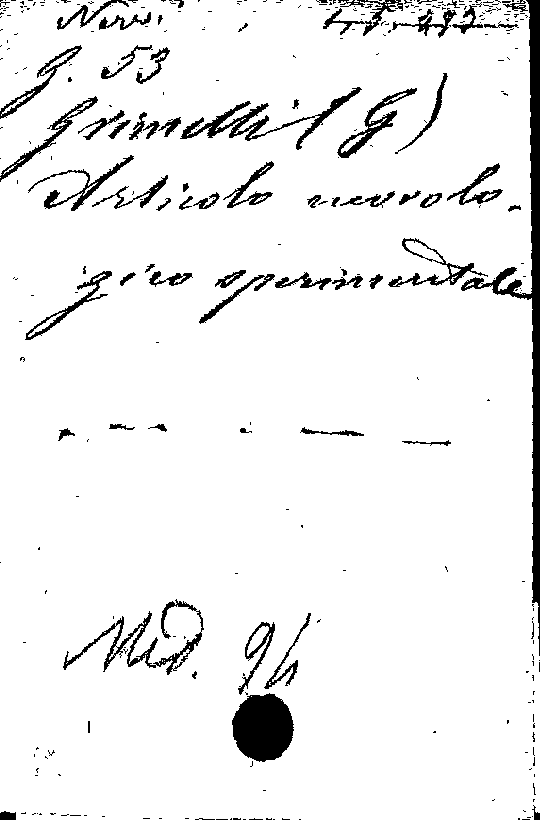 Nevr.
G. 53
Grimelli (G)
Articolo nevrolo-
gico sperimentale
Med. 94